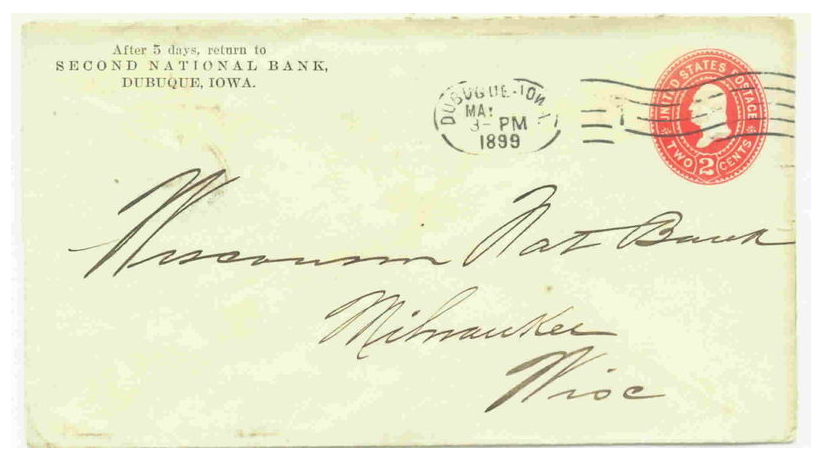 After 5 days, return to
SECOND NATIONAL BANK,
DUBUQUE, IOWA.
DUBUQUE-IOWA.
MAY
3-PM
1899
1
UNITED STATES POSTAGE
TWO 2 CENTS
Wisconsin Nat Bank
Milwaukee
Wisc